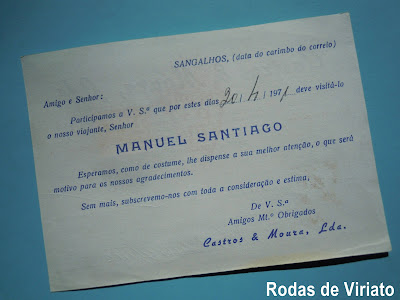 SANGALHOS, (data do carimbo do correio)
Amigo e Senhor:
Participamos a V. S.ª que por estes dias 20/4/1971 deve visitá-lo
o nosso viajante, Senhor
MANUEL SANTIAGO
Esperamos, como de costume, lhe dispense a sua melhor atenção, o que será
motivo para os nossos agradecimentos.
Sem mais, subscrevemo-nos com toda a consideração e estima.
De V. S.ª
Amigos Mt.º Obrigados
Castros & Moura, Lda.
Rodas de Viriato